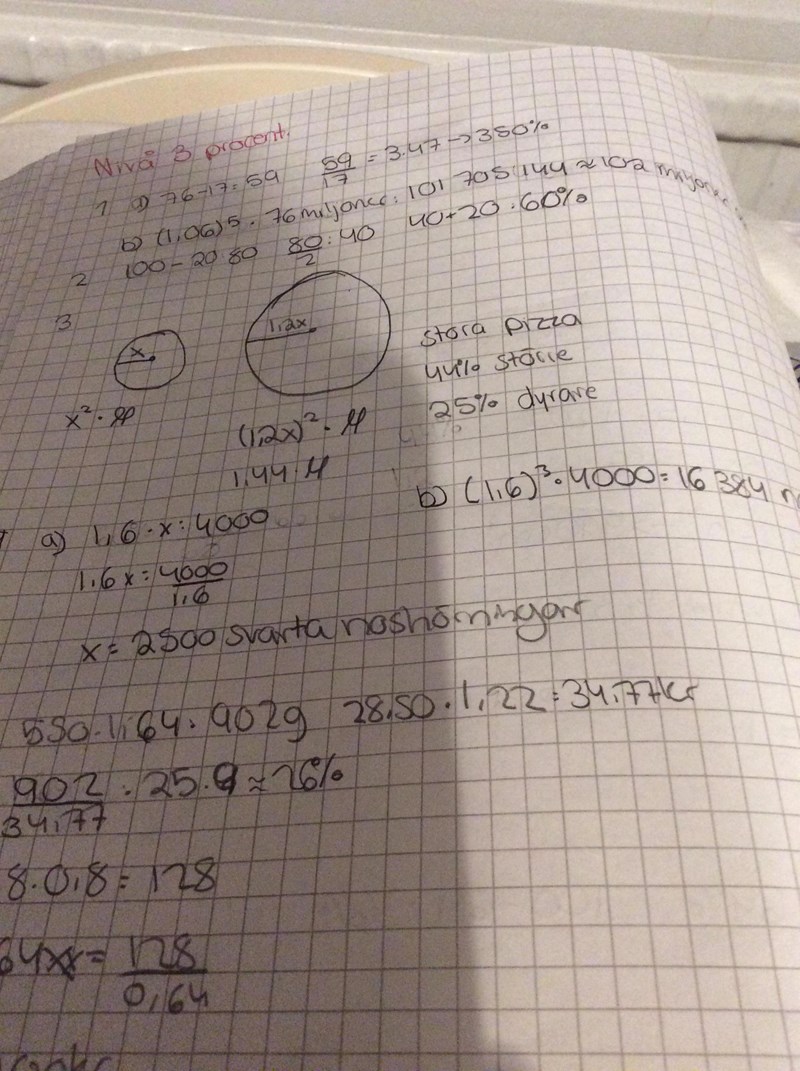 Nivå 3 procent.
1 a) 76-17=59 59/17 = 3.47 → 350%
b) (1,06)5 · 76 miljoner = 101 705 144 ≈ 102
2 100-20=80 80/2 = 40 40+20=60%
3
x 1,2x
stora pizza
44% större
25% dyrare
x² · π (1,2x)² · π
1,44 · π
a) 1,6 · x = 4000 b) (1,6)³ · 4000 = 16 384
1.6x = 4000/1,6
x = 2500 svarta noshörningar
550 · 1,64 = 902g 28,50 · 1,22 = 34,77kr
902/34,77 = 25.9 ≈ 26%
8 · 0,8 = 128
= 128/0,64